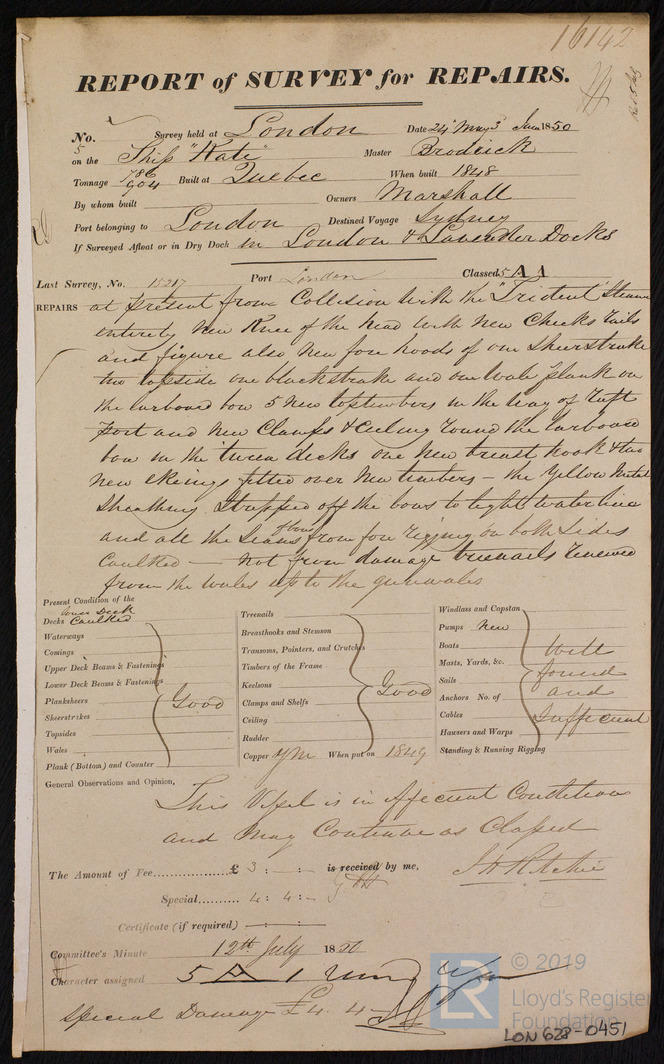 16142
REPORT of SURVEY for REPAIRS.
No. Survey held at London Date 24 May 3 June 1850
5
on the Ship "Kate" Master Brodrick
Tonnage 786 904 Built at Quebec When built 1848
By whom built Owners Marshall
Port belonging to London Destined Voyage Sydney
If Surveyed Afloat or in Dry Dock in London & Lavender Docks
Last Survey, No. 15217 Port London Classed 5 A A
REPAIRS at present from Collision with the "Trident" Steamer
entirely New Knee of the head with new Cheeks Rails
and figure also New fore hoods of one Sheerstrake
two topside one blackstrake and one Wale plank on
the larboard bow 5 New toptimbers in the way of Raft
Port and New Clamps & Ceiling round the larboard
bow in the tween decks one New breast hook & two
new ekeings fitted over New timbers – the Yellow Metal
Sheathing Stripped off the bows to light water line
and all the Seams of bows from fore rigging on both Sides
Caulked — not from damage treenails renewed
from the wales up to the gunwales
Present Condition of the
lower Deck
Decks Caulked
Waterways
Comings
Upper Deck Beams & Fastenings
Lower Deck Beams & Fastenings
Planksheers
Sheerstrakes
Topsides
Wales
Plank (Bottom) and Counter
Good
Treenails
Breasthooks and Stemson
Transoms, Pointers, and Crutches
Timbers of the Frame
Keelsons
Clamps and Shelfs
Ceiling
Rudder
Good
Copper YM When put on 1849
Windlass and Capstan
Pumps New
Boats
Masts, Yards, &c.
Sails
Anchors No. of
Cables
Hausers and Warps
Standing & Running Rigging
Well
found
and
Sufficient
General Observations and Opinion,
This Vessel is in efficient Condition
and May Continue as Classed
The Amount of Fee £ 3 : - : - is received by me,
J H Ritchie
Special 4 : 4 : -
Certificate (if required)
Committee's Minute 12th July 1850
Character assigned 5 A 1
Special Damage £4. 4
© 2019
LR
Lloyd's Register
Foundation
LON 628-0451